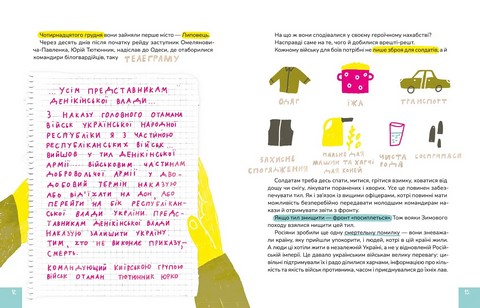 Чотирнадцятого грудня вони зайняли перше місто — Липовець.
Через десять днів після початку рейду заступник Омелянови-
ча-Павленка, Юрій Тютюнник, надіслав до Одеси, де отаборилися
командири білогвардійців, таку ТЕЛЕГРАМУ
...УСІМ ПРЕДСТАВНИКАМ
ДЕНІКІНСЬКОЇ ВЛАДИ...
З НАКАЗУ ГОЛОВНОГО ОТАМАНА
ВІЙСК УКРАЇНСЬКОЇ НАРОДНОЇ
РЕСПУБЛІКИ Я З ЧАСТИНОЮ
РЕСПУБЛІКАНСЬКИХ ВІЙСК
ВИЙШОВ У ТИЛ ДЕНІКІНСЬКОЇ
АРМІЇ. ВІЙСЬКОВИМ ЧАСТИНАМ
ДОБРОВОЛЬЧОЇ АРМІЇ У ДВО-
ДОБОВИЙ ТЕРМІН НАКАЗУЮ
АБО ВІД'ЇХАТИ НА ДОН, АБО
ПЕРЕЙТИ НА БІК РЕСПУБЛІКАН-
СЬКОЇ ВЛАДИ УКРАЇНИ. ПРЕДС-
ТАВНИКАМ ДЕНІКІНСЬКОЇ ВЛАДИ
НАКАЗУЮ ЗАЛИШИТИ УКРАЇНУ.
ТИМ, ХТО НЕ ВИКОНАЄ ПРИКАЗУ,—
СМЕРТЬ.
КОМАНДУЮЧИЙ КИЇВСЬКОЮ ГРУПОЮ
ВІЙСК ОТАМАН ТЮТЮННИК ЮРКО
На що ж вони сподівалися у своєму героїчному нахабстві?
Насправді саме на те, чого й добилися врешті-решт.
Кожному війську для боїв потрібні не лише зброя для солдатів, а й
ОДЯГ
ЇЖА
ТРАНСПОРТ
ЗАХИСНЕ
СПОРЯДЖЕННЯ
ПАЛЬНЕ ДЛЯ
МАШИН ТА ХАРЧІ
ДЛЯ КОНЕЙ
ЧИСТА
ВОДА
Солдатам треба десь спати, митися, стригтися, взимку, ховатися від
дощу чи снігу, лікувати поранених і хворих. Усе це повинен забез-
печувати тил. Як і зв'язок із вищими офіцерами, котрі повинні мати
можливість безперебійно передавати молодшим командирам нака-
зи й отримувати звіти з фронту.
Якщо тил знищити — фронт «посиплеться». Тож вояки Зимового
походу взялися нищити цей тил.
Росіяни зробили ще одну смертельну помилку — вони зневажа-
ли країну, яку прийшли упокорити, і людей, котрі в цій країні жили.
А люди ці хотіли жити в незалежній Україні, а не у відновленій Росій-
ській імперії. Це давало українським військам велику перевагу: ци-
вільні підтримували їх і радо ділилися харчами, інформацією про кіль-
кість та якість військ противника, часом і приєднувалися до їхніх лав.